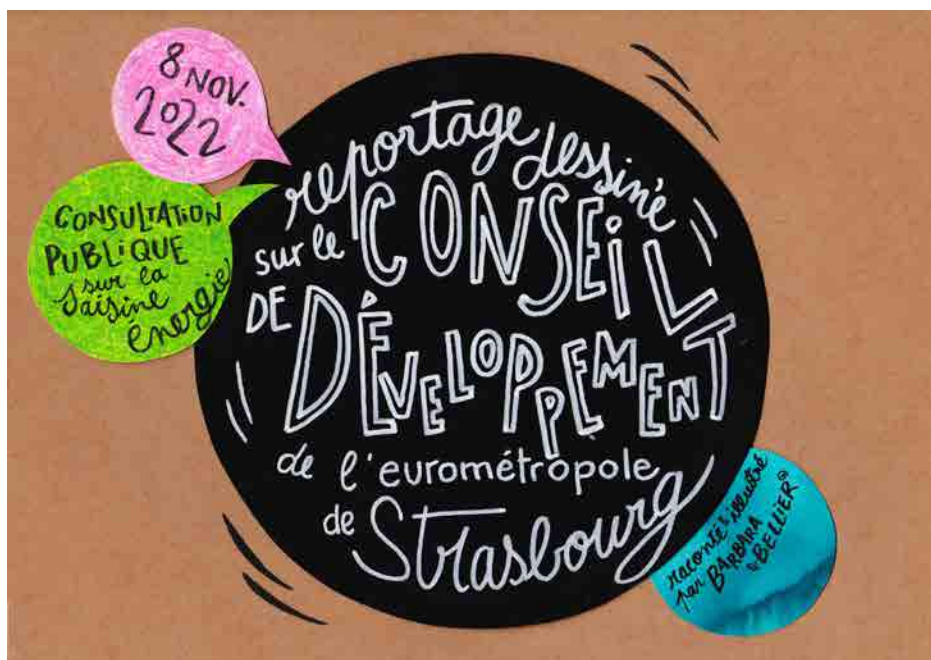 8 NOV.
2022
CONSULTATION
PUBLIQUE
sur la
saisine
énergie
reportage dessiné
sur le CONSEIL
DE DÉVELOPPEMENT
de l'eurométropole
de Strasbourg
raconté & illustré
par BARBARA
BELLIER